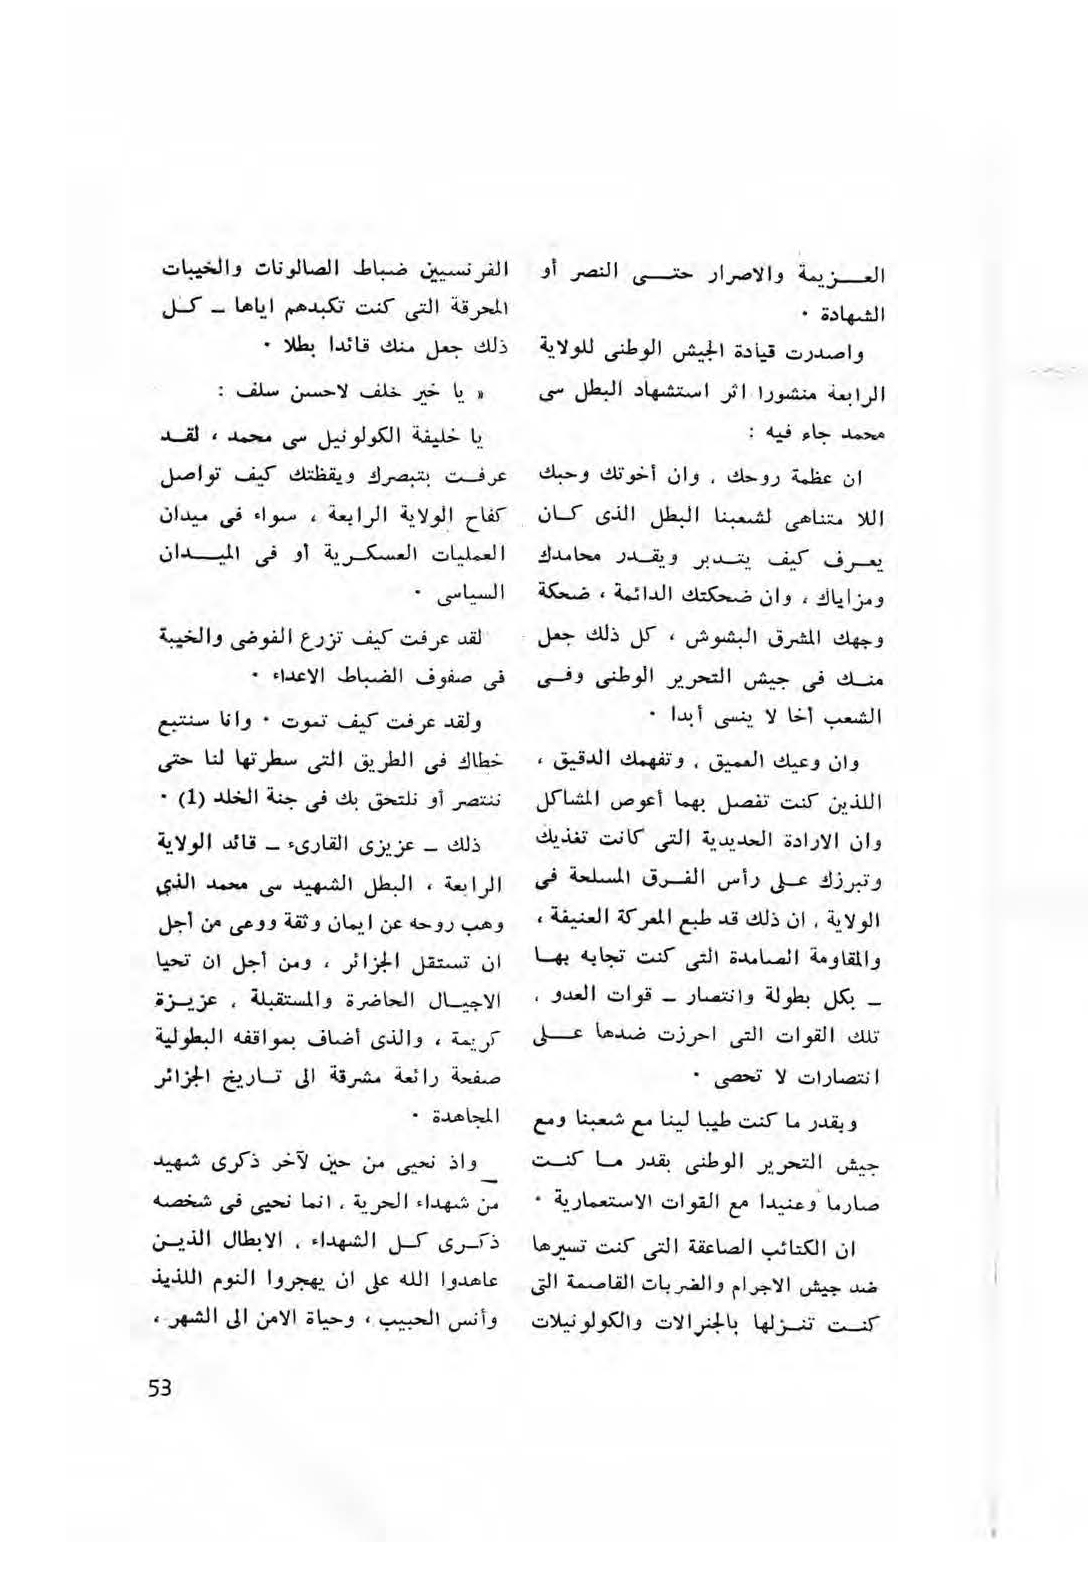 العزيمة والاصرار حتى النصر أو
الشهادة ·
واصدرت قيادة الجيش الوطنى للولاية
الرابعة منشورا اثر استشهاد البطل سى
محمد جاء فيه :
ان عظمة روحك ، وان أخوتك وحبك
اللا متناهى لشعبنا البطل الذى كان
يعرف كيف يتدبر ويقدر محامدك
ومزاياك ، وان ضحكتك الدائمة ، ضحكة
وجهك المشرق البشوش ، كل ذلك جعل
منك فى جيش التحرير الوطنى وفى
الشعب أخا لا ينسى أبدا ·
وان وعيك العميق ، وتفهمك الدقيق ،
اللذين كنت تفصل بهما أعوص المشاكل
وان الارادة الحديدية التى كانت تغذيك
وتبرزك على رأس الفرق المسلحة فى
الولاية ، ان ذلك قد طبع المعركة العنيفة ،
والمقاومة الصامدة التى كنت تجابه بها
– بكل بطولة وانتصار – قوات العدو ،
تلك القوات التى احرزت ضدها على
انتصارات لا تحصى ·
وبقدر ما كنت طيبا لينا مع شعبنا ومع
جيش التحرير الوطنى بقدر ما كنت
صارما وعنيدا مع القوات الاستعمارية ·
ان الكتائب الصاعقة التى كنت تسيرها
ضد جيش الاجرام والضربات القاصمة التى
كنت تنزلها بالجنرالات والكولونيلات
الفرنسيين ضباط الصالونات والخيبات
المحرقة التى كنت تكبدهم اياها – كل
ذلك جعل منك قائدا بطلا ·
« يا خير خلف لاحسن سلف :
يا خليفة الكولونيل سى محمد ، لقد
عرفت بتبصرك ويقظتك كيف تواصل
كفاح الولاية الرابعة ، سواء فى ميدان
العمليات العسكرية أو فى الميدان
السياسى ·
لقد عرفت كيف تزرع الفوضى والخيبة
فى صفوف الضباط الاعداء ·
ولقد عرفت كيف تموت · وانا سنتبع
خطاك فى الطريق التى سطرتها لنا حتى
ننتصر أو نلتحق بك فى جنة الخلد (1) ·
ذلك – عزيزى القارىء – قائد الولاية
الرابعة ، البطل الشهيد سى محمد الذي
وهب روحه عن ايمان وثقة ووعى من أجل
ان تستقل الجزائر ، ومن أجل ان تحيا
الاجيال الحاضرة والمستقبلة ، عزيزة
كريمة ، والذى أضاف بمواقفه البطولية
صفحة رائعة مشرقة الى تاريخ الجزائر
المجاهدة ·
واذ نحيى من حين لآخر ذكرى شهيد
من شهداء الحرية ، انما نحيى فى شخصه
ذكرى كل الشهداء ، الابطال الذين
عاهدوا الله على ان يهجروا النوم اللذيذ
وأنس الحبيب ، وحياة الامن الى الشهر ،
53